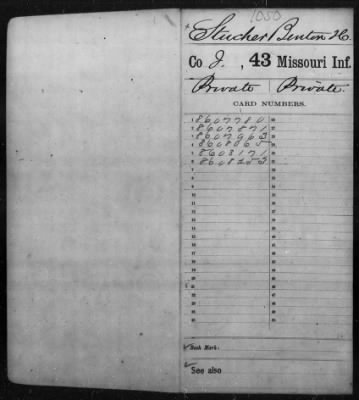 1050
Steicher, Benton H.
Co J., 43 Missouri Inf.
Private Private.
CARD NUMBERS.
1 8607780
2 8607871
3 8607963
4 8608065
5 8608171
6 8608253
Book Mark:
See also